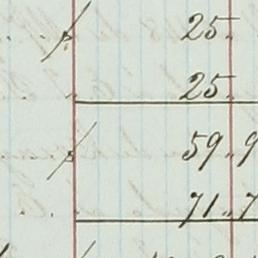 25 "
25 "
59 " 9
71 " 7